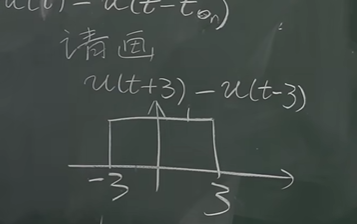 u(t) - u(t-t
请画
u(t+3) - u(t-3)
-3 3